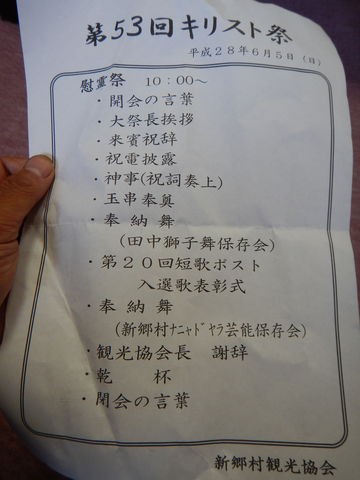 第53回キリスト祭
平成28年6月5日(日)
慰霊祭 10:00~
・開会の言葉
・大祭長挨拶
・来賓祝辞
・祝電披露
・神事(祝詞奏上)
・玉串奉奠
・奉納舞
(田中獅子舞保存会)
・第20回短歌ポスト
入選歌表彰式
・奉納舞
(新郷村ナニャドヤラ芸能保存会)
・観光協会長 謝辞
・乾 杯
・閉会の言葉
新郷村観光協会